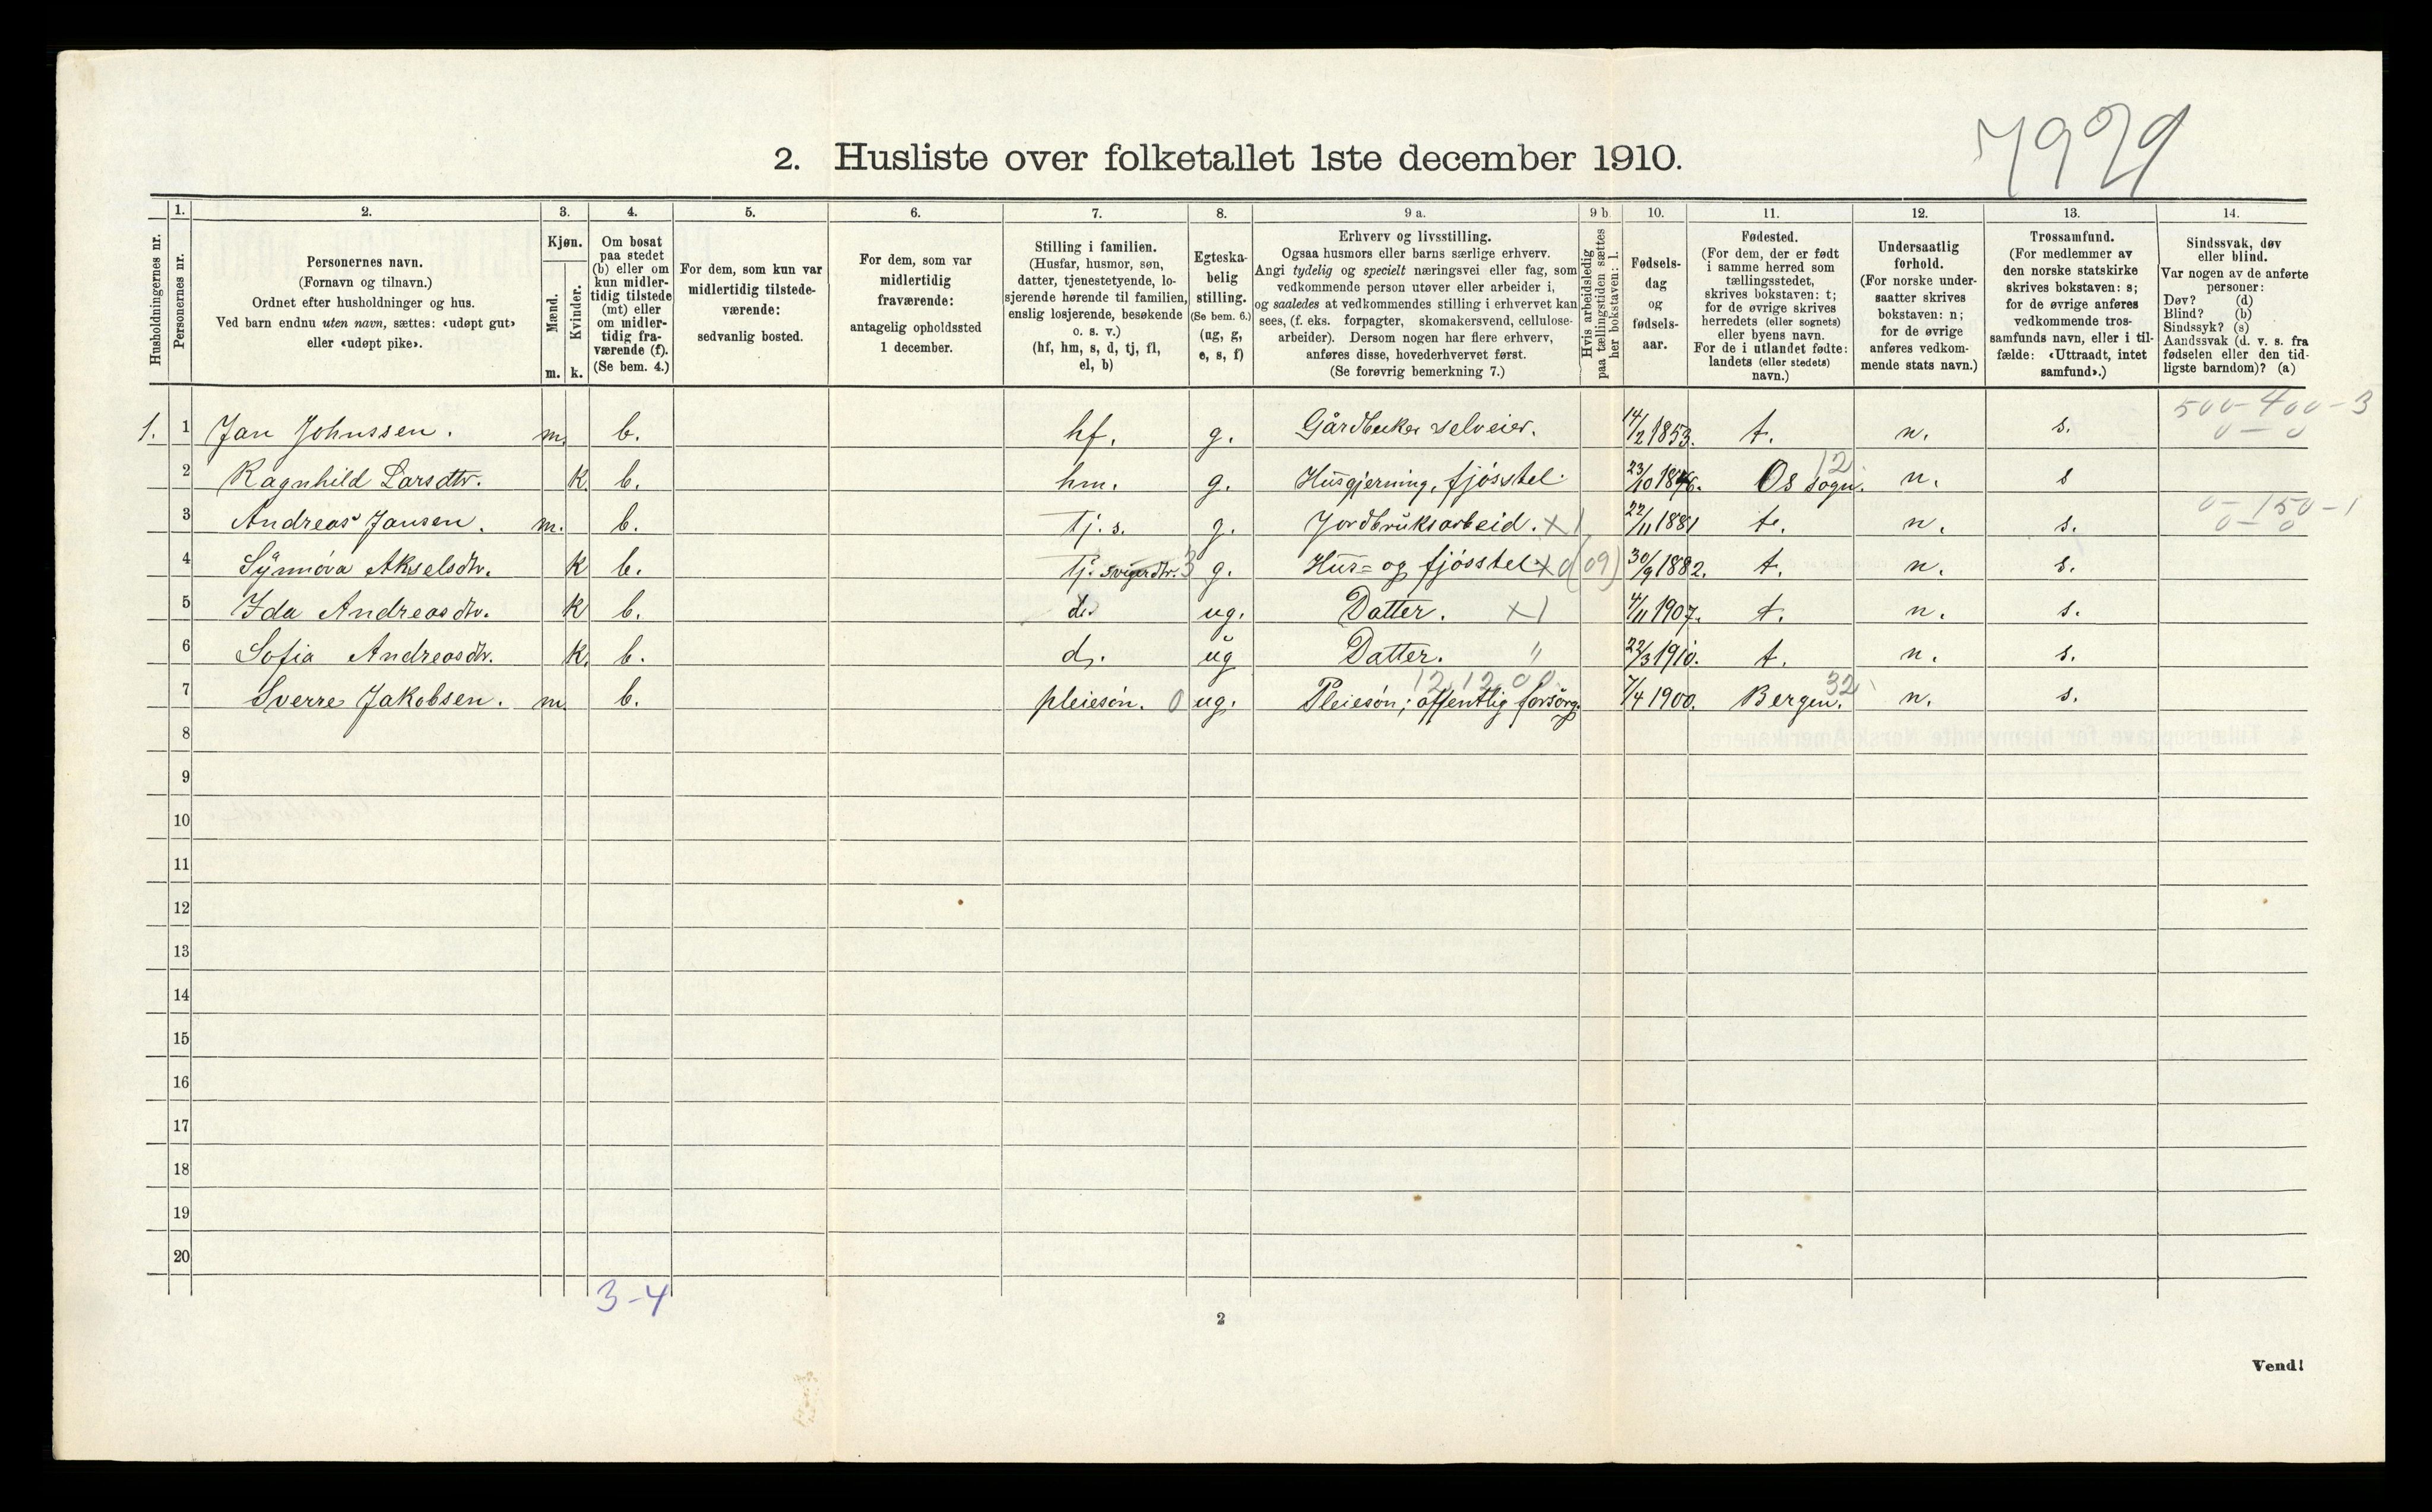 7929
2. Husliste over folketallet 1ste december 1910.
Husholdningernes nr.
1.
Personernes nr.
2.
Personernes navn.
(Fornavn og tilnavn.)
Ordnet efter husholdninger og hus.
Ved barn endnu uten navn, sættes: «udøpt gut»
eller «udøpt pike».
3.
Kjøn.
Mænd.
Kvinder.
m. k.
4.
Om bosat
paa stedet
(b) eller om
kun midler-
tidig tilstede
(mt) eller
om midler-
tidig fra-
værende (f).
(Se bem. 4.)
5.
For dem, som kun var
midlertidig tilstede-
værende:
sedvanlig bosted.
6.
For dem, som var
midlertidig
fraværende:
antagelig opholdssted
1 december.
7.
Stilling i familien.
(Husfar, husmor, søn,
datter, tjenestetyende, lo-
sjerende hørende til familien,
enslig losjerende, besøkende
o. s. v.)
(hf, hm, s, d, tj, fl,
el, b)
8.
Egteska-
belig
stilling.
(Se bem. 6.)
(ug, g,
e, s, f)
9 a.
Erhverv og livsstilling.
Ogsaa husmors eller barns særlige erhverv.
Angi tydelig og specielt næringsvei eller fag, som
vedkommende person utøver eller arbeider i,
og saaledes at vedkommendes stilling i erhvervet kan
sees, (f. eks. forpagter, skomakersvend, cellulose-
arbeider). Dersom nogen har flere erhverv,
anføres disse, hovederhvervet først.
(Se forøvrig bemerkning 7.)
9 b
Hvis arbeidsledig
paa tællingstiden sættes
her bokstaven: l.
10.
Fødsels-
dag
og
fødsels-
aar.
11.
Fødested.
(For dem, der er født
i samme herred som
tællingsstedet,
skrives bokstaven: t;
for de øvrige skrives
herredets (eller sognets)
eller byens navn.
For de i utlandet fødte:
landets (eller stedets)
navn.)
12.
Undersaatlig
forhold.
(For norske under-
saatter skrives
bokstaven: n;
for de øvrige
anføres vedkom-
mende stats navn.)
13.
Trossamfund.
(For medlemmer av
den norske statskirke
skrives bokstaven: s;
for de øvrige anføres
vedkommende tros-
samfunds navn, eller i til-
fælde: «Uttraadt, intet
samfund».)
14.
Sindssvak, døv
eller blind.
Var nogen av de anførte
personer:
Døv? (d)
Blind? (b)
Sindssyk? (s)
Aandssvak (d. v. s. fra
fødselen eller den tid-
ligste barndom)? (a)
1. 1 Jan Johnssen. m. b. hf. g. Gårdbruker selveier. 14/2 1853. t. n. s. 500-400-3
0-0
2 Ragnhild Larsdtr. k. b. hm. g. Husgjerning, fjösstel. 23/10 1846. Os sogn. 12 n. s
3 Andreas Jansen. m. b. Tj. s. g. Jordbruksarbeid. x1 22/11 1881 t. n. s. 0-150-1
0-0
4 Synnöva Akselsdtr. k b. Tj. svigerdtr. 3 g. Hus- og fjösstel x d(09) 30/9 1882. t. n. s.
5 Ida Andreasdtr. k b. d. ug. Datter. x1 4/11 1907. t. n. s.
6 Sofia Andreasdtr. k. b. d. ug Datter. " 22/3 1910. t. n. s.
7 Sverre Jakobsen. m. b. pleiesön. 0 ug. Pleiesön; offentlig forsörg. 12.12.00. 7/4 1900. Bergen. 32 n. s.
8
9
10
11
12
13
14
15
16
17
18
19
20
3-4
2
Vend!